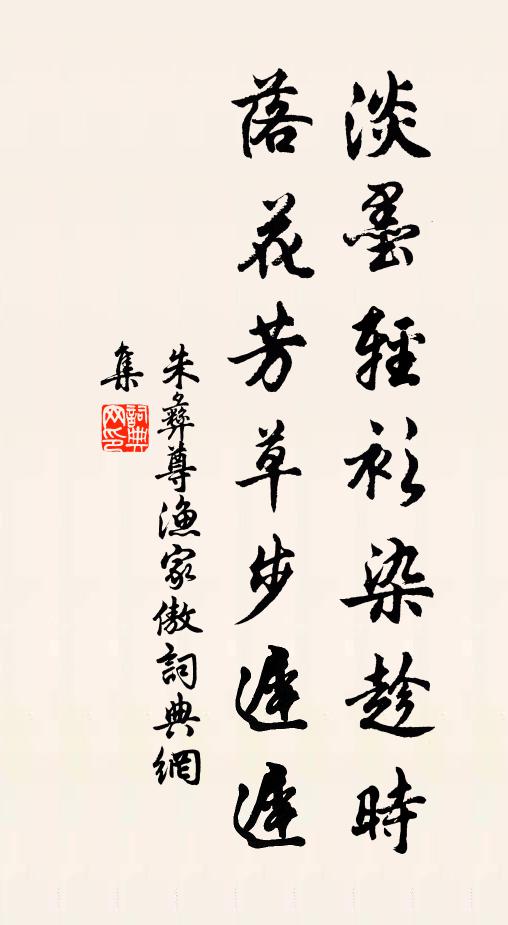 淡墨輕衫染趁時
落花芳草步遲遲
朱彝尊漁家傲詞典網
集
詞典網印